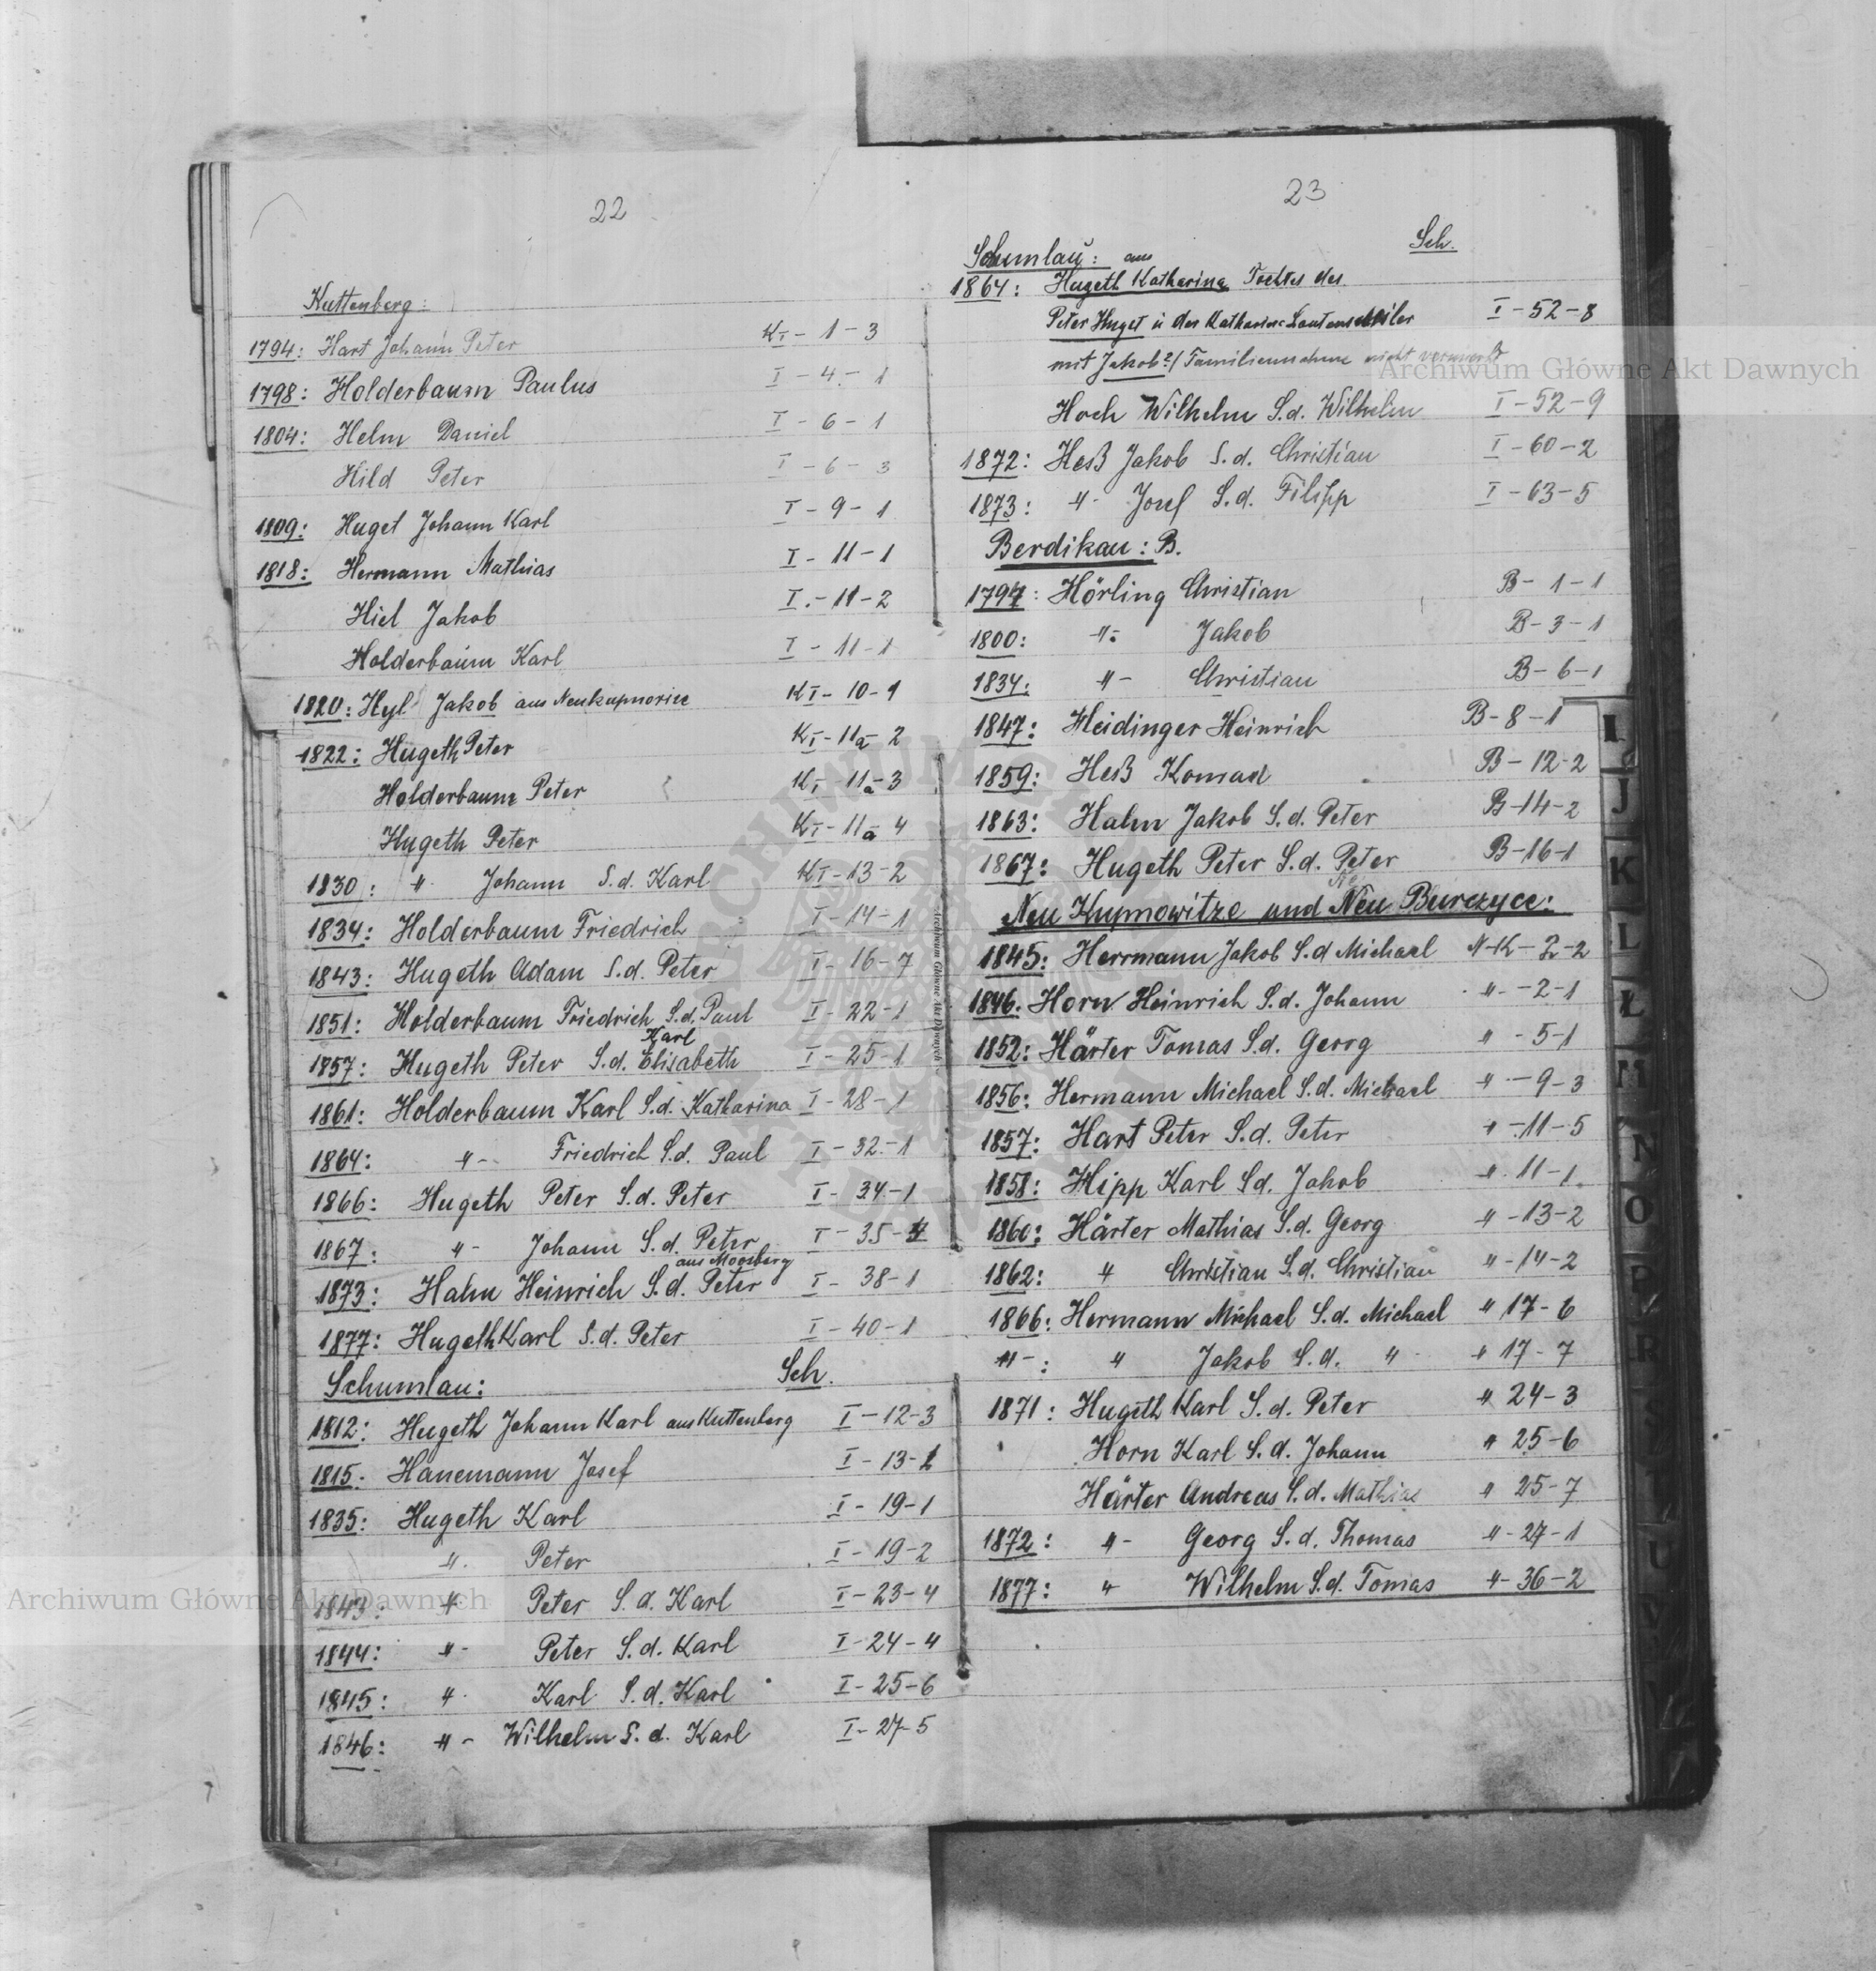 22
Kuttenberg:
1794: Hart Johann Peter KI - 1 - 3
1798: Holderbaum Paulus I - 4 - 1
1804: Helm Daniel I - 6 - 1
Hild Peter I - 6 - 3
1809: Huget Johann Karl I - 9 - 1
1818: Hermann Mathias I - 11 - 1
Hiel Jakob I - 11 - 2
Holderbaum Karl I - 11 - 1
1820: Hyl Jakob aus Neukupnovice KI - 10 - 1
1822: Hugeth Peter KI - 11a - 2
Holderbaum Peter KI - 11a - 3
Hugeth Peter KI - 11a - 4
1830: " Johann S.d. Karl KI - 13 - 2
1834: Holderbaum Friedrich I - 14 - 1
1843: Hugeth Adam S.d. Peter I - 16 - 7
1851: Holderbaum Friedrich S.d. Paul I - 22 - 1
Karl
1857: Hugeth Peter S.d. Elisabeth I - 25 - 1
1861: Holderbaum Karl S.d. Katharina I - 28 - 1
1864: " - Friedrich S.d. Paul I - 32 - 1
1866: Hugeth Peter S.d. Peter I - 34 - 1
1867: " - Johann S.d. Peter I - 35 -
aus Moosberg
1873: Hahn Heinrich S.d. Peter I - 38 - 1
1877: Hugeth Karl S.d. Peter I - 40 - 1
Schumlau: Sch.
1812: Hugeth Johann Karl aus Kuttenberg I - 12 - 3
1815. Hanemann Josef I - 13 -
1835: Hugeth Karl I - 19 - 1
" Peter I - 19 - 2
1843: " Peter S.d. Karl I - 23 - 4
1844: " - Peter S.d. Karl I - 24 - 4
1845: " Karl S.d. Karl I - 25 - 6
1846: " - Wilhelm S.d. Karl I - 27 - 5
23
Schumlau: Sch.
aus
1864: Hugeth Katharina Tochter des
Peter Huget ü der Katharina Lautenschleiler I - 52 - 8
mit Jakob?/ Familiennahme nicht vermerkt
Hoch Wilhelm S.d. Wilhelm I - 52 - 9
1872: Heß Jakob S.d. Christian I - 60 - 2
1873: " Josef S.d. Filipp I - 63 - 5
Berdikau: B.
1794: Hörling Christian B - 1 - 1
1800: " - Jakob B - 3 - 1
1834: " - Christian B - 6 - 1
1847: Heidinger Heinrich B - 8 - 1
1859: Heß Konrad B - 12 - 2
1863: Hahn Jakob S.d. Peter B - 14 - 2
1867: Hugeth Peter S.d. Peter B - 16 - 1
Neu Kupnowitze und Neu Burczyce:
1845: Herrmann Jakob S.d Michael N-K - 2 - 2
1846. Horn Heinrich S.d. Johann " - 2 - 1
1852: Härter Tomas S.d. Georg " - 5 - 1
1856: Hermann Michael S.d. Michael " - 9 - 3
1857: Hart Peter S.d. Peter " - 11 - 5
1858: Hipp Karl S.d. Jakob " 11 - 1.
1860: Härter Mathias S.d. Georg " - 13 - 2
1862: " Christian S.d. Christian " - 14 - 2
1866: Hermann Michael S.d. Michael " 17 - 6
" - : " Jakob S.d. " " 17 - 7
1871: Hugeth Karl S.d. Peter " 24 - 3
Horn Karl S.d. Johann " 25 - 6
Härter Andreas S.d. Mathias " 25 - 7
1872: " - Georg S.d. Thomas " - 27 - 1
1877: " Wilhelm S.d. Tomas " - 36 - 2
I
J
K
L
Ł
M
N
O
P
R
S
U
V
Archiwum Główne Akt Dawnych
Archiwum Główne Akt Dawnych
Archiwum Główne Akt Dawnych